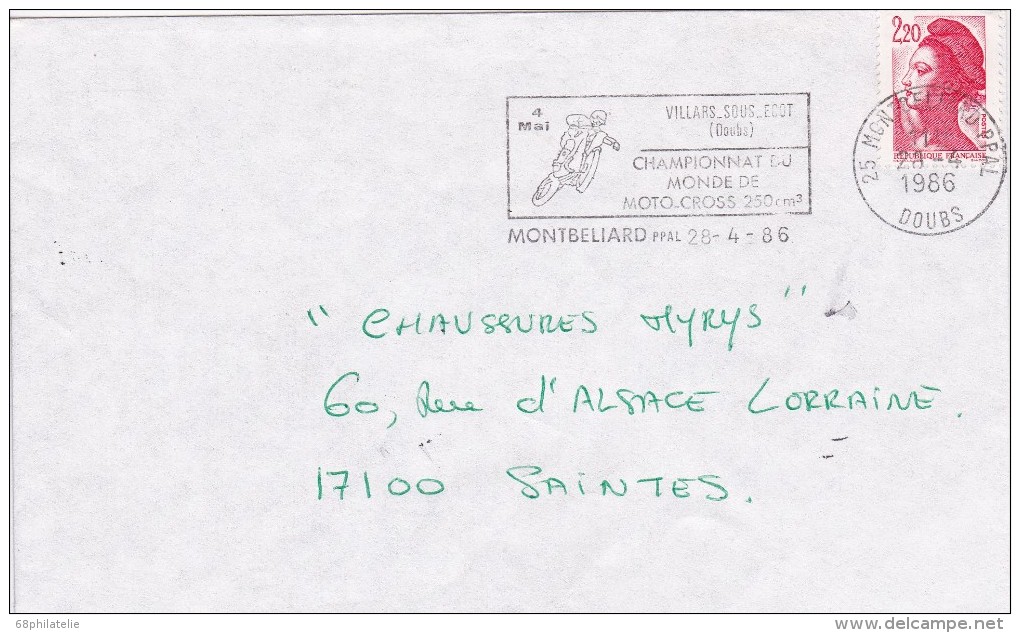 2,20
RÉPUBLIQUE FRANÇAISE
4
Mai
VILLARS_SOUS_ECOT
(Doubs)
CHAMPIONNAT DU
MONDE DE
MOTO-CROSS 250cm³
MONTBELIARD PPAL 28-4-86
1986
DOUBS
" CHAUSSURES MYRYS "
60, Rue d'ALSACE LORRAINE.
17100 SAINTES.
68philatelie
www.delcampe.net